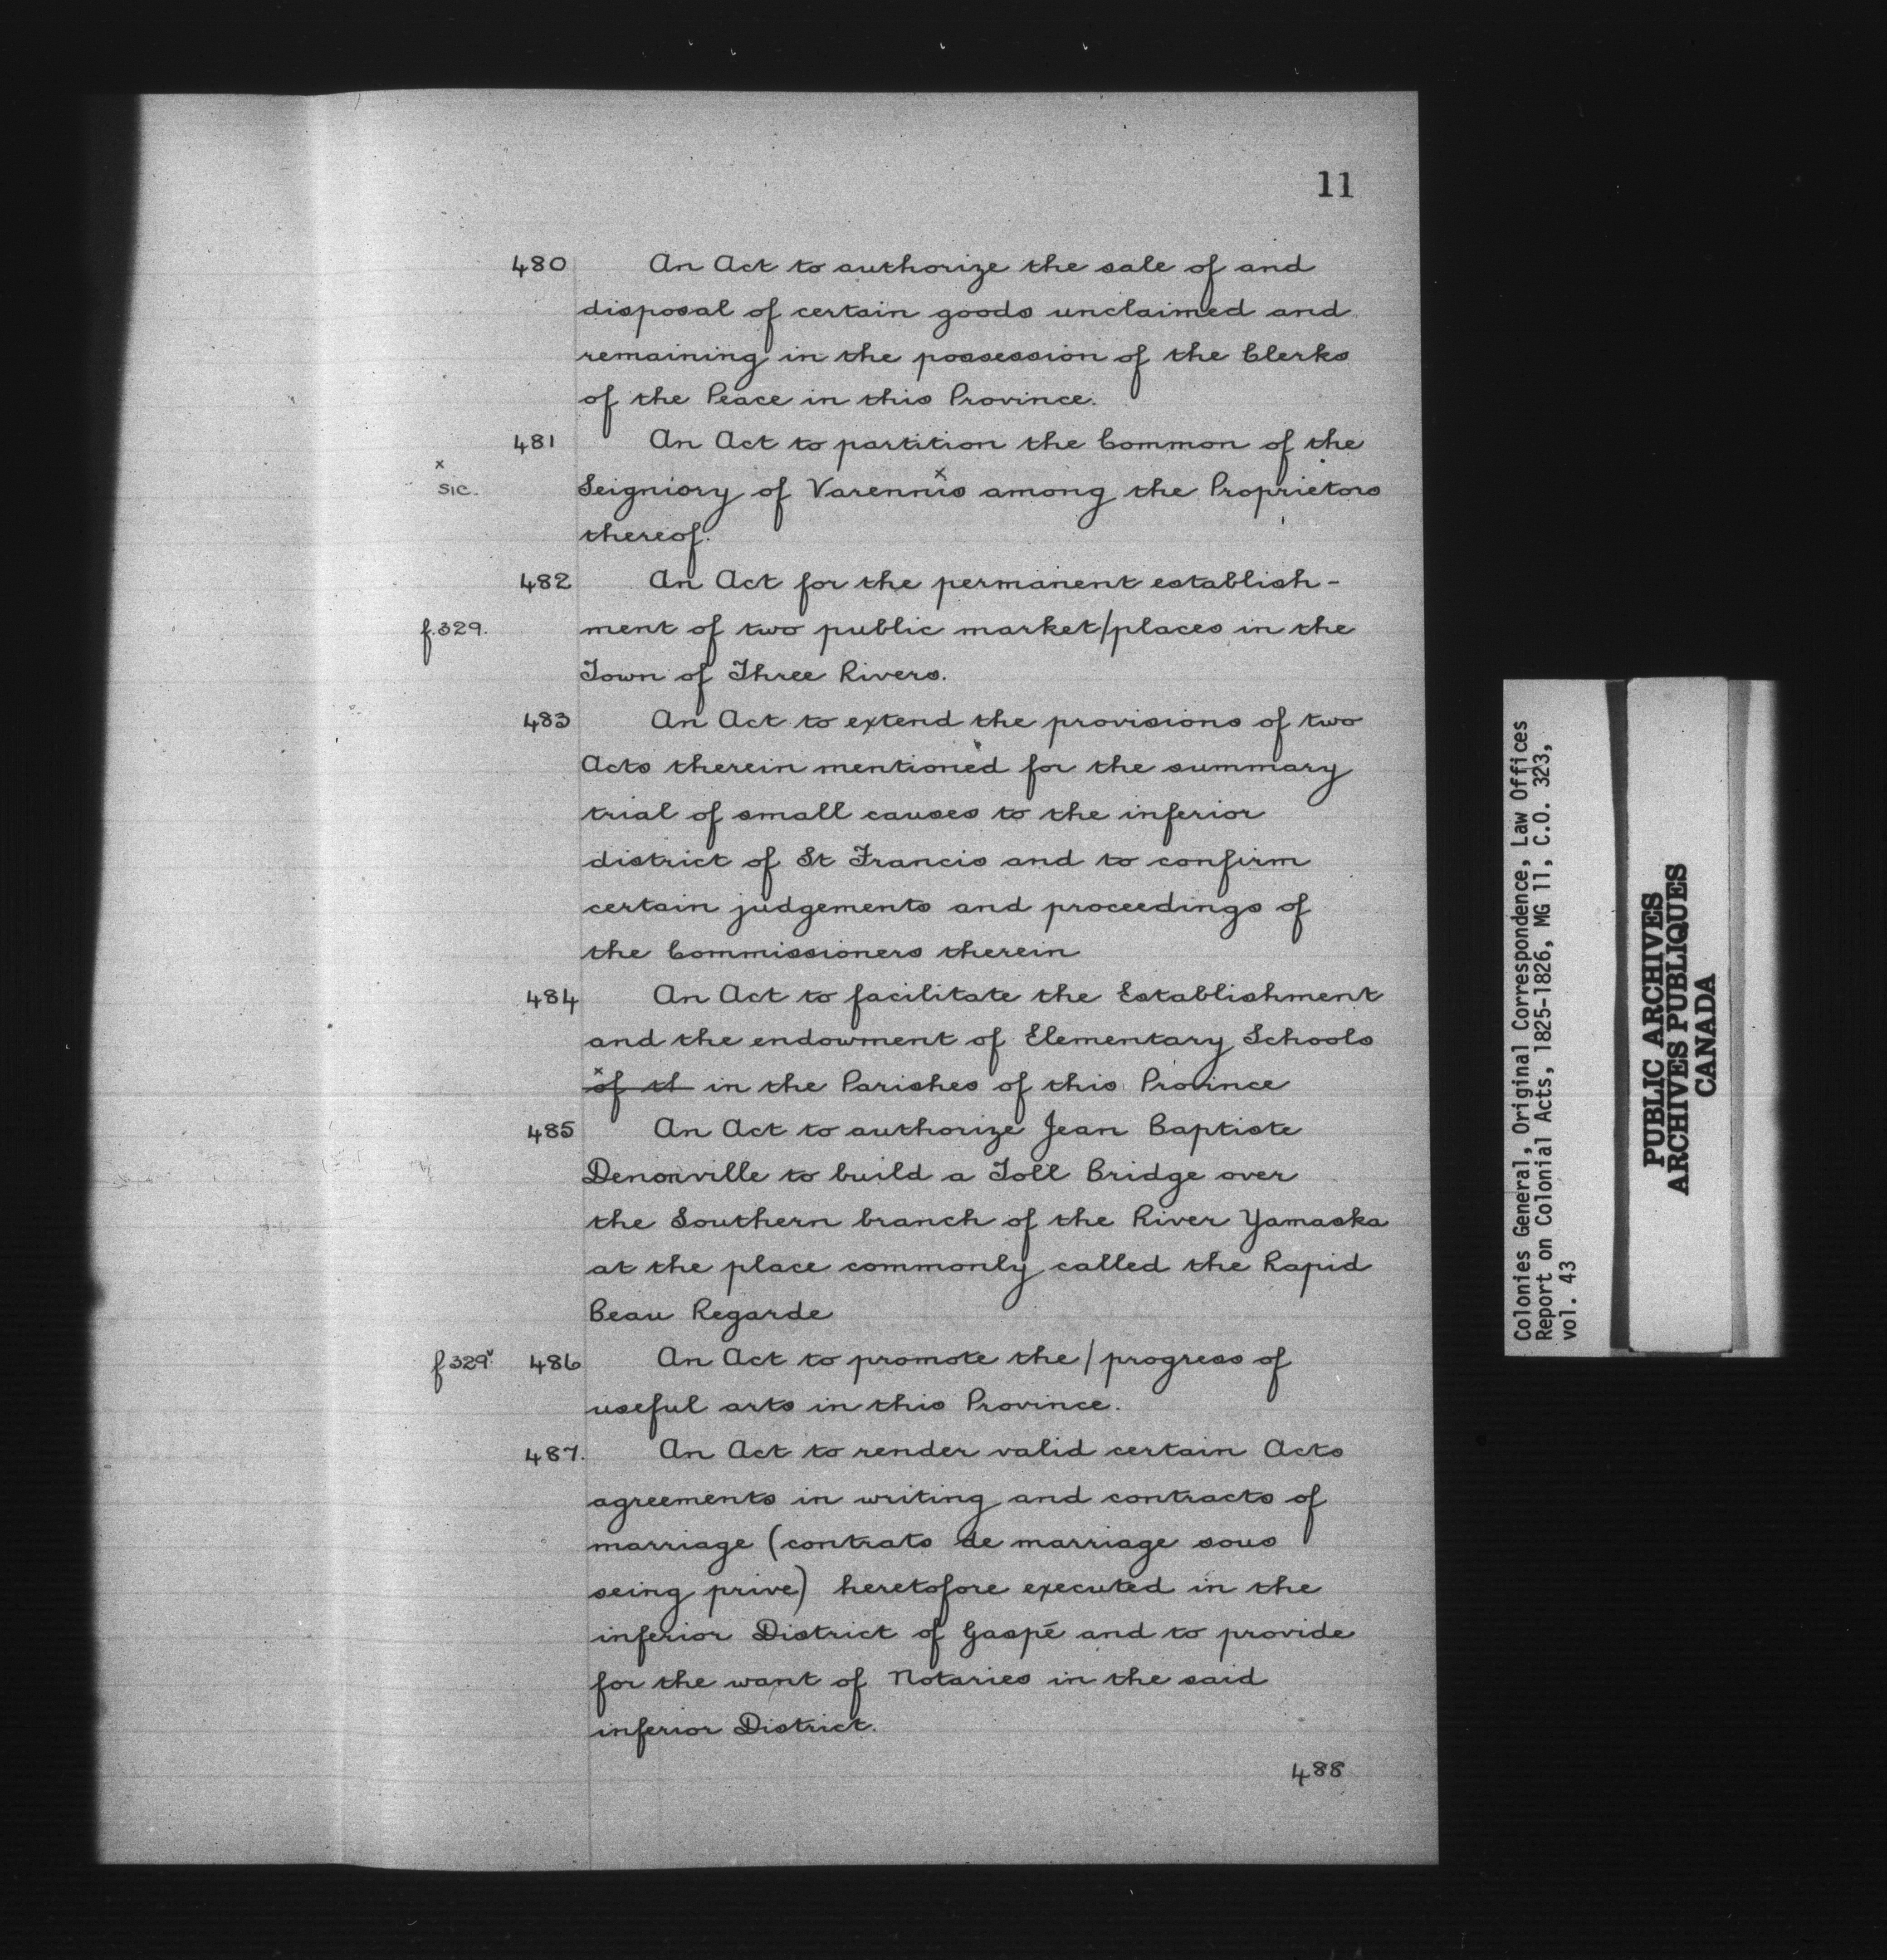 11
480 An Act to authorize the sale of and
disposal of certain goods unclaimed and
remaining in the possession of the Clerks
of the Peace in this Province.
481 An Act to partition the Common of the
x
sic. Seigniory of Varennis x among the Proprietors
thereof.
482 An Act for the permanent establish-
f.329. ment of two public market/places in the
Town of Three Rivers.
483 An Act to extend the provisions of two
Acts therein mentioned for the summary
trial of small causes to the inferior
district of St Francis and to confirm
certain judgements and proceedings of
the Commissioners therein
484 An Act to facilitate the Establishment
and the endowment of Elementary Schools
x of th in the Parishes of this Province
485 An Act to authorize Jean Baptiste
Denonville to build a Toll Bridge over
the Southern branch of the River Yamaska
at the place commonly called the Rapid
Beau Regarde
f329v 486 An Act to promote the/progress of
useful arts in this Province.
487. An Act to render valid certain Acts
agreements in writing and contracts of
marriage (contrats de marriage sous
seing prive) heretofore executed in the
inferior District of Gaspé and to provide
for the want of Notaries in the said
inferior District.
488
Colonies General, Original Correspondence, Law Offices
Report on Colonial Acts, 1825-1826, MG 11, C.O. 323,
vol. 43
PUBLIC ARCHIVES
ARCHIVES PUBLIQUES
CANADA